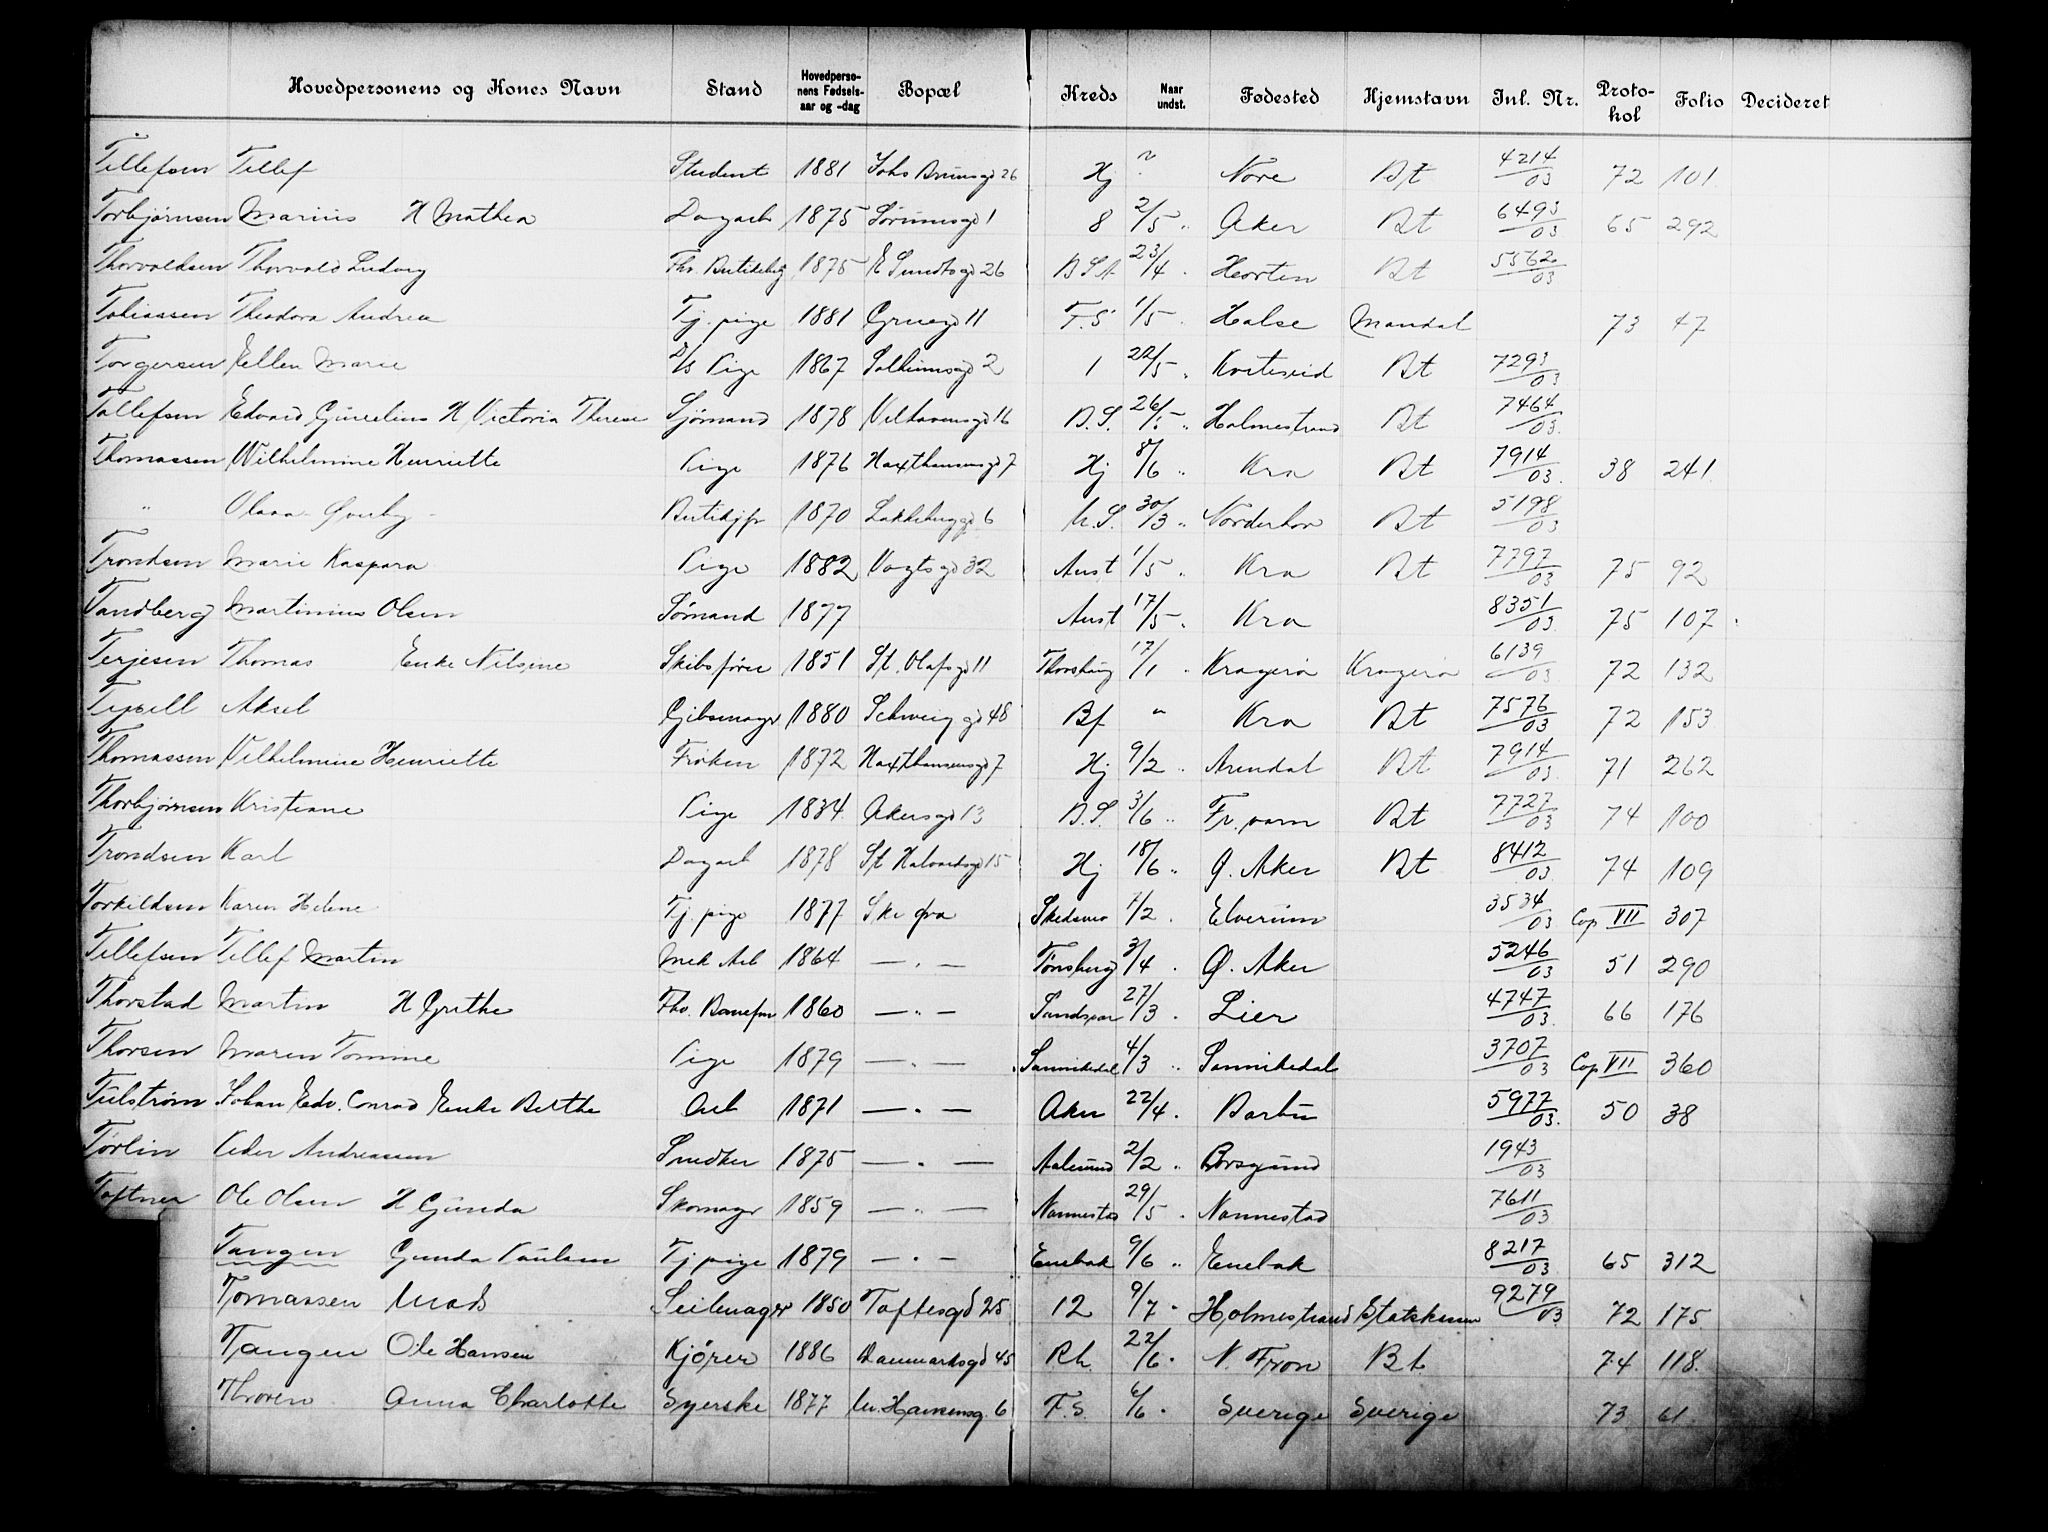 Hovedpersonens og Kones Navn Stand Hovedpersonens Fødselsaar og -dag Bopæl Kreds Naar undst. Fødested Hjemstavn Inl. Nr. Protokol Folio Decideret
Tellefsen Tellef Student 1881 26 Hj Nore Bt 4214/03 72 101
Torbjørnsen Marius H Mathea Dagarb 1875 Sørumsgd 1 8 2/5 " Aker Bt 6493/03 65 292
Thorvaldsen Thorvald Ludvig Fhv. 1875 E Sundtsgd 26 23/4 Horten Bt 5562/03
Tobiassen Theodora Andrea Tj. pige 1881 Gruegd 11 F.S 1/5 Halse Mandal 73 47
Torgersen Ellen Marie Pige 1867 2 1 22/5 " Kviteseid Bt 7293/03
Tallefsen Edvard H Victoria Therese Sjømand 1878 Velhavensgd 16 B.S. 26/5 " Holmestrand Bt 7464/03
Thomassen Wilhelmine Henriette Pige 1876 Haxthausensgd 7 Hj 8/6 " Kra Bt 7914/03 38 241
" Olava 1870 6 U.S. 30/3 " Norderhov Bt 5198/03
Trondsen Marie Kaspara Pige 1882 Vogtsgd 32 Aust 1/5 " Kra Bt 7797/03 75 92
Tandberg Martinius Olsen Sømand 1877 Aust 17/5 " Kra 8351/03 75 107
Terjesen Thomas Enke Nilsine Skibsfører 1851 St. Olafsgd 11 17/1 " Kragerø Kragerø 6139/03 72 132
Aksel Gibsmager 1880 Schweiggd 48 Bf " Kra Bt 7576/03 72 153
Thomassen Vilhelmine Henriette Frøken 1872 Haxthausensgd 7 Hj 9/2 " Arendal Bt 7914/03 71 262
Thorbjørnsen Kristiane Pige 1834 Akersgd 13 B.S. 3/6 " Bt 7727/03 74 100
Trondsen Karl Dagarb 1878 St Halvardsgd 15 Hj 18/6 " Ø. Aker Bt 8412/03 74 109
Torkildsen Karen Helene Tj. pige 1877 Skedsmo 1/2 " Elverum 3534/03 Cop VII 307
Tellefsen Tellef Martin Mek Arb 1864 — " — Tønsberg 3/4 " Ø. Aker 5246/03 51 290
Thorstad Martin H Grethe Fhv. 1860 — " — Sandsvær 27/3 " Lier 4747/03 66 176
Thorsen Maren Tomine Pige 1879 — " — Sannikedal 4/3 " Sannikedal 3707/03 Cop VII 360
Tülstrøm Johan Edv. Conrad Enke Berthe Arb 1871 — " — Aker 22/4 " Barbu 5977/03 50 38
Tørlin Peder Andreassen Snedker 1875 — " — Aalesund 2/2 " Borgund 1943/03
Toftner Ole Olsen H Gunda Skomager 1859 — " — Nannestad 29/5 " Nannestad 7611/03
Tangen Gunda Paulsen Tj pige 1879 — " — Enebak 9/6 " Enebak 8217/03 65 312
Tomassen Mads Seilmager 1850 Toftesgd 25 12 9/7 " Holmestrand Statskassen 9279/03 72 175
Tangen Ole Hansen Kjører 1886 Danmarksgd 45 Rh. 22/6 " N. Fron Bt. 74 118
Thoren Anna Charlotte Syerske 1877 6 F.S. 6/6 " Sverige Sverige 73 61